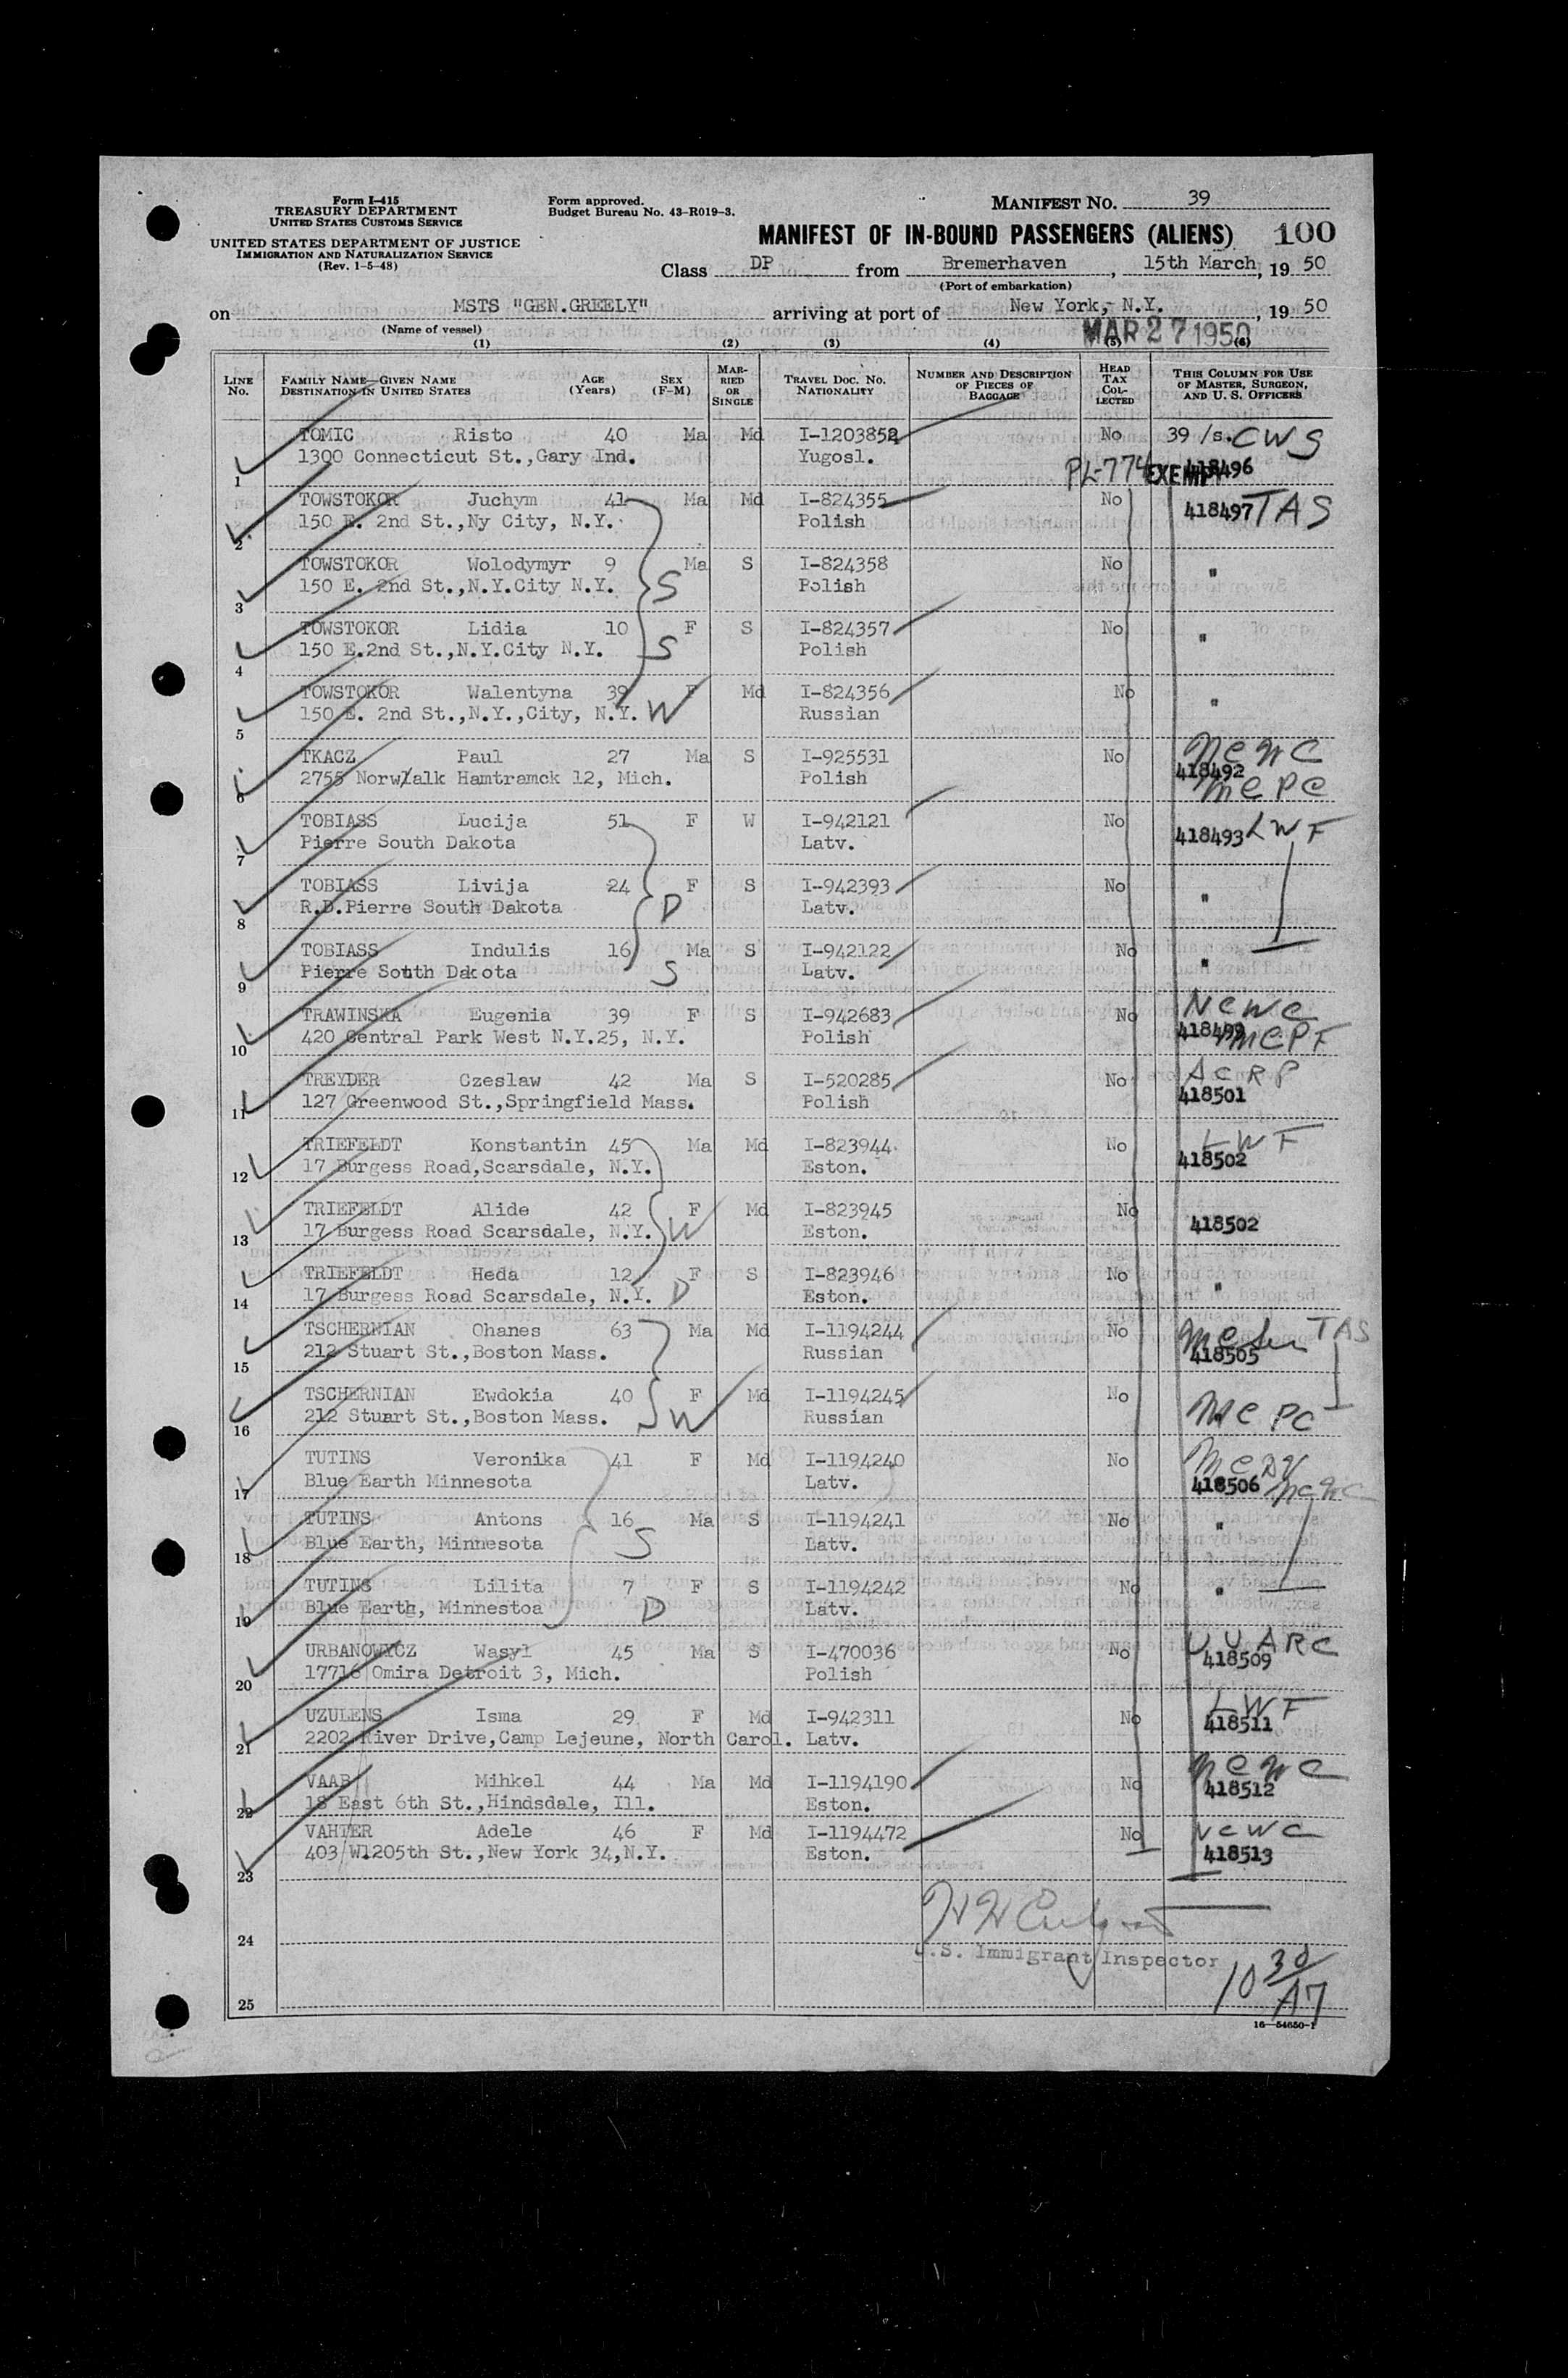 Form I-415
TREASURY DEPARTMENT
UNITED STATES CUSTOMS SERVICE
UNITED STATES DEPARTMENT OF JUSTICE
IMMIGRATION AND NATURALIZATION SERVICE
(Rev. 1-5-48)
Form approved.
Budget Bureau No. 43-R019-3.
MANIFEST NO. 39
MANIFEST OF IN-BOUND PASSENGERS (ALIENS) 100
Class DP from Bremerhaven, 15th March, 19 50
(Port of embarkation)
on MSTS "GEN.GREELY" arriving at port of New York, N.Y., 19 50
(Name of vessel)
MAR 27 1950
(1) (2) (3) (4) (5) (6)
LINE No. FAMILY NAME—GIVEN NAME DESTINATION IN UNITED STATES AGE (Years) SEX (F-M) MARRIED OR SINGLE TRAVEL DOC. NO. NATIONALITY NUMBER AND DESCRIPTION OF PIECES OF BAGGAGE HEAD TAX COLLECTED THIS COLUMN FOR USE OF MASTER, SURGEON, AND U. S. OFFICERS
TOMIC Risto 40 Ma Md I-1203852 No 39 /s. CWS
1 1300 Connecticut St.,Gary Ind. Yugosl. PL-774 EXEMPT 418496
TOWSTOKOR Juchym 41 Ma Md I-824355 No 418497 TAS
2 150 E. 2nd St.,Ny City, N.Y. Polish
TOWSTOKOR Wolodymyr 9 Ma S I-824358 No "
3 150 E. 2nd St.,N.Y.City N.Y. S Polish
TOWSTOKOR Lidia 10 F S I-824357 No "
4 150 E.2nd St.,N.Y.City N.Y. S Polish
TOWSTOKOR Walentyna 39 F Md I-824356 No "
5 150 E. 2nd St.,N.Y.,City, N.Y. W Russian
TKACZ Paul 27 Ma S I-925531 No NCWC 418492
6 2755 Norwalk Hamtramck 12, Mich. Polish MCPC
TOBIASS Lucija 51 F W I-942121 No 418493 LWF
7 Pierre South Dakota Latv.
TOBIASS Livija 24 F S I-942393 No "
8 R.D.Pierre South Dakota D Latv.
TOBIASS Indulis 16 Ma S I-942122 No "
9 Pierre South Dakota S Latv.
TRAWINSKA Eugenia 39 F S I-942683 No NCWC 418499
10 420 Central Park West N.Y.25, N.Y. Polish MCPF
TREYDER Czeslaw 42 Ma S I-520285 No ACRP
11 127 Greenwood St.,Springfield Mass. Polish 418501
TRIEFELDT Konstantin 45 Ma Md I-823944 No LWF
12 17 Burgess Road,Scarsdale, N.Y. Eston. 418502
TRIEFELDT Alide 42 F Md I-823945 No
13 17 Burgess Road Scarsdale, N.Y. W Eston. 418502
TRIEFELDT Heda 12 F S I-823946 No "
14 17 Burgess Road Scarsdale, N.Y. D Eston.
TSCHERNIAN Ohanes 63 Ma Md I-1194244 No TAS
15 212 Stuart St.,Boston Mass. Russian 418505
TSCHERNIAN Ewdokia 40 F Md I-1194245 No
16 212 Stuart St.,Boston Mass. W Russian MCPC
TUTINS Veronika 41 F Md I-1194240 No
17 Blue Earth Minnesota Latv. 418506 NCWC
TUTINS Antons 16 Ma S I-1194241 No "
18 Blue Earth, Minnesota S Latv.
TUTINS Lilita 7 F S I-1194242 No "
19 Blue Earth, Minnestoa D Latv.
URBANOWYCZ Wasyl 45 Ma S I-470036 No UUARC
20 17716 Omira Detroit 3, Mich. Polish 418509
UZULENS Isma 29 F Md I-942311 No LWF
21 2202 River Drive,Camp Lejeune, North Carol. Latv. 418511
VAAB Mihkel 44 Ma Md I-1194190 No NCWC
22 18 East 6th St.,Hindsdale, Ill. Eston. 418512
VAHTER Adele 46 F Md I-1194472 No NCWC
23 403 W.205th St.,New York 34,N.Y. Eston. 418513
24
U.S. Immigrant Inspector
10 30/
25
16—54650-1